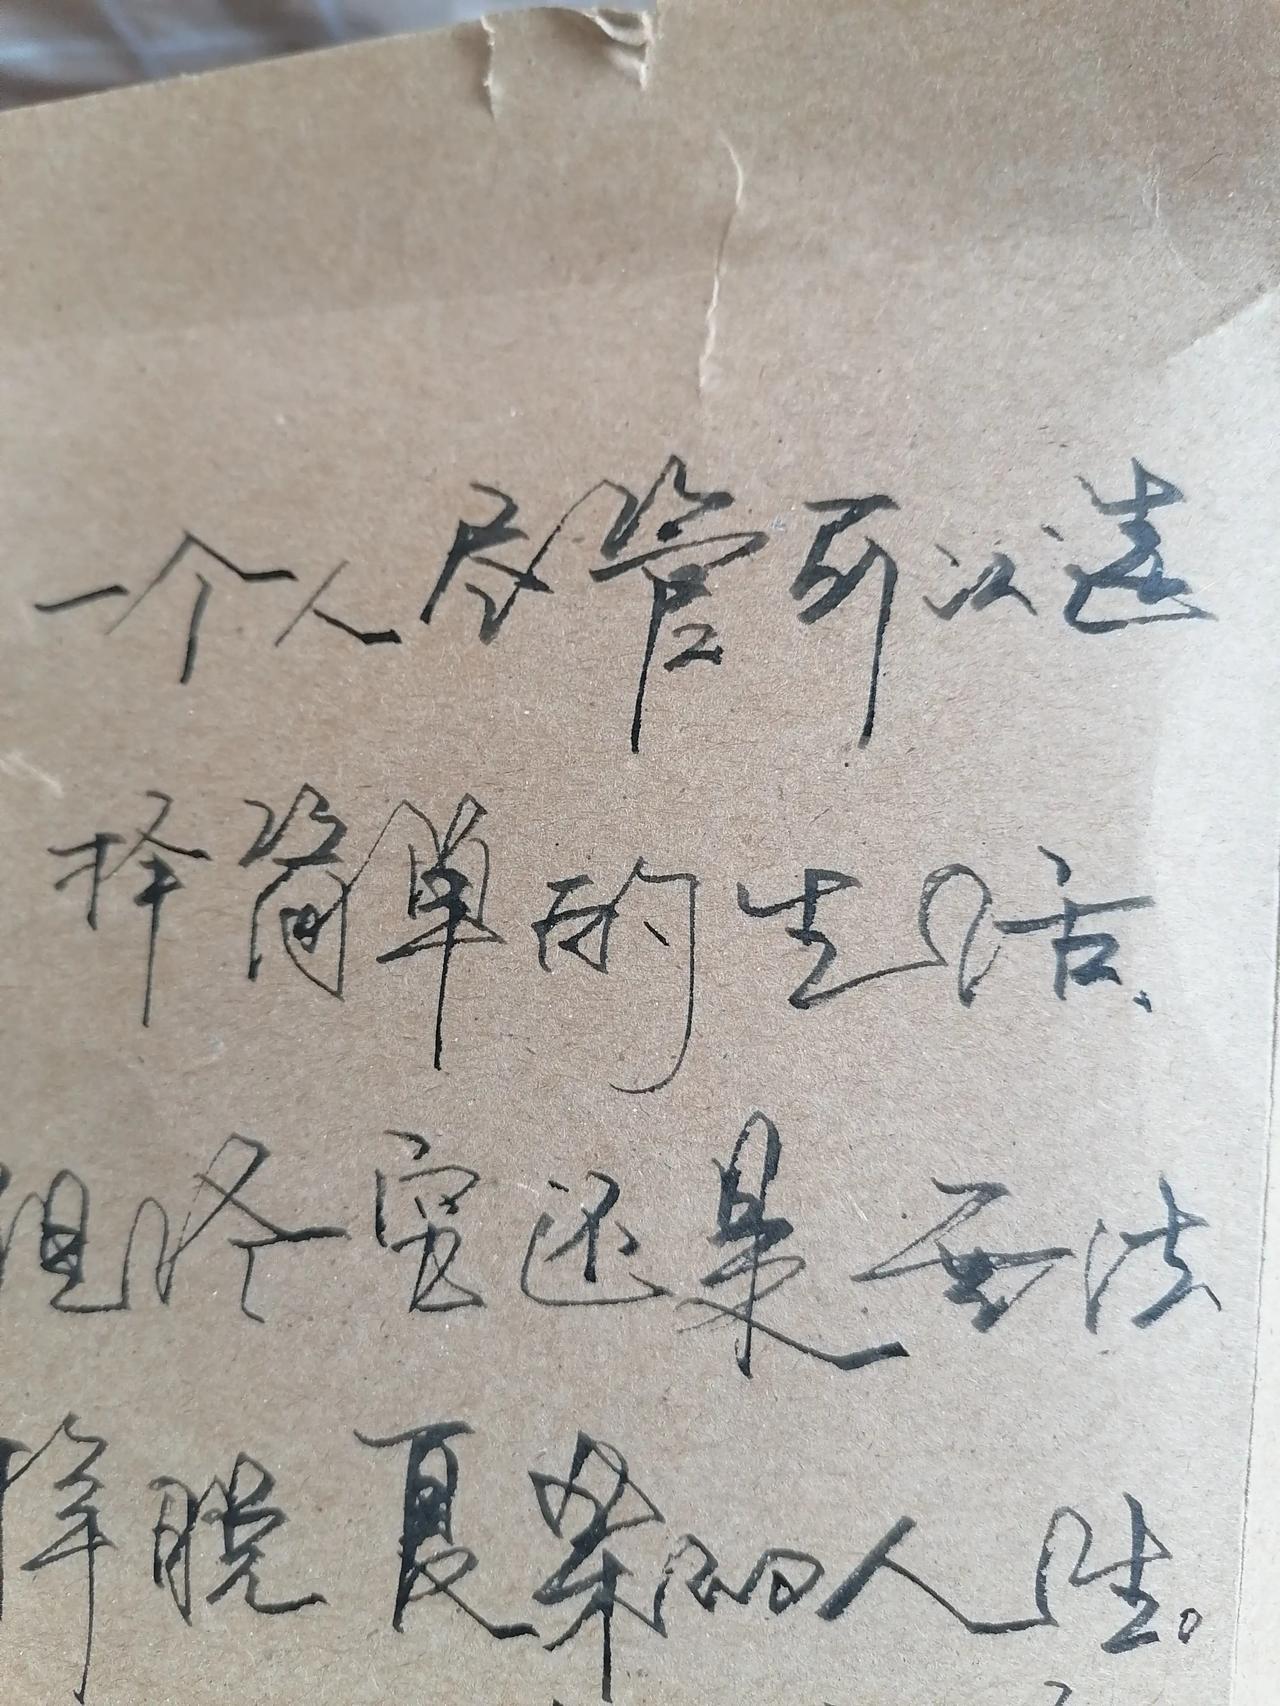 一个人尽管可以选
择简单的生活、
但终究还是无法
择脱复杂的人生。